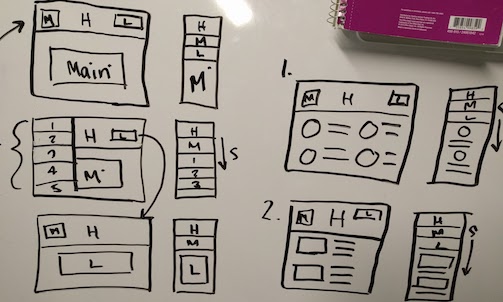 M H L
Main
H
M
L
M
1
2
3
4
5
H L
M
H
M
1
2
3
S
M H L
L
H
M
L
1.
M H L
H
M
L
2.
M H L
H
M
L
S